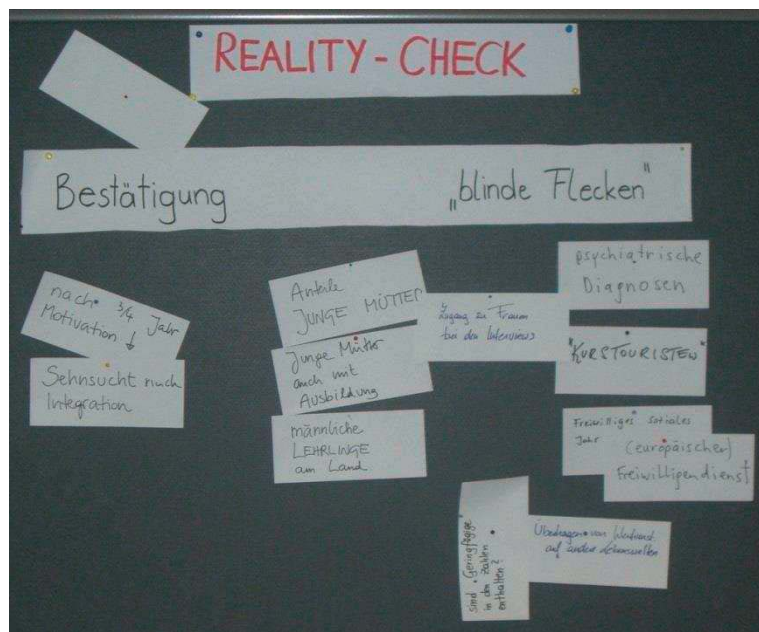 REALITY - CHECK
Bestätigung
„blinde Flecken"
nach 3/4 Jahr
Motivation ↓
Sehnsucht nach
Integration
Anteile
JUNGE MÜTTER
Junge Mütter
auch mit
Ausbildung
männliche
LEHRLINGE
am Land
Zugang zu Frauen
bei den Interviews
psychiatrische
Diagnosen
"KURSTOURISTEN"
Freiwilliges soziales
Jahr
(europäischer)
Freiwilligendienst
sind Geringfügige
in den Zahlen
enthalten?
Übertragen von
auf andere Lebenswelten